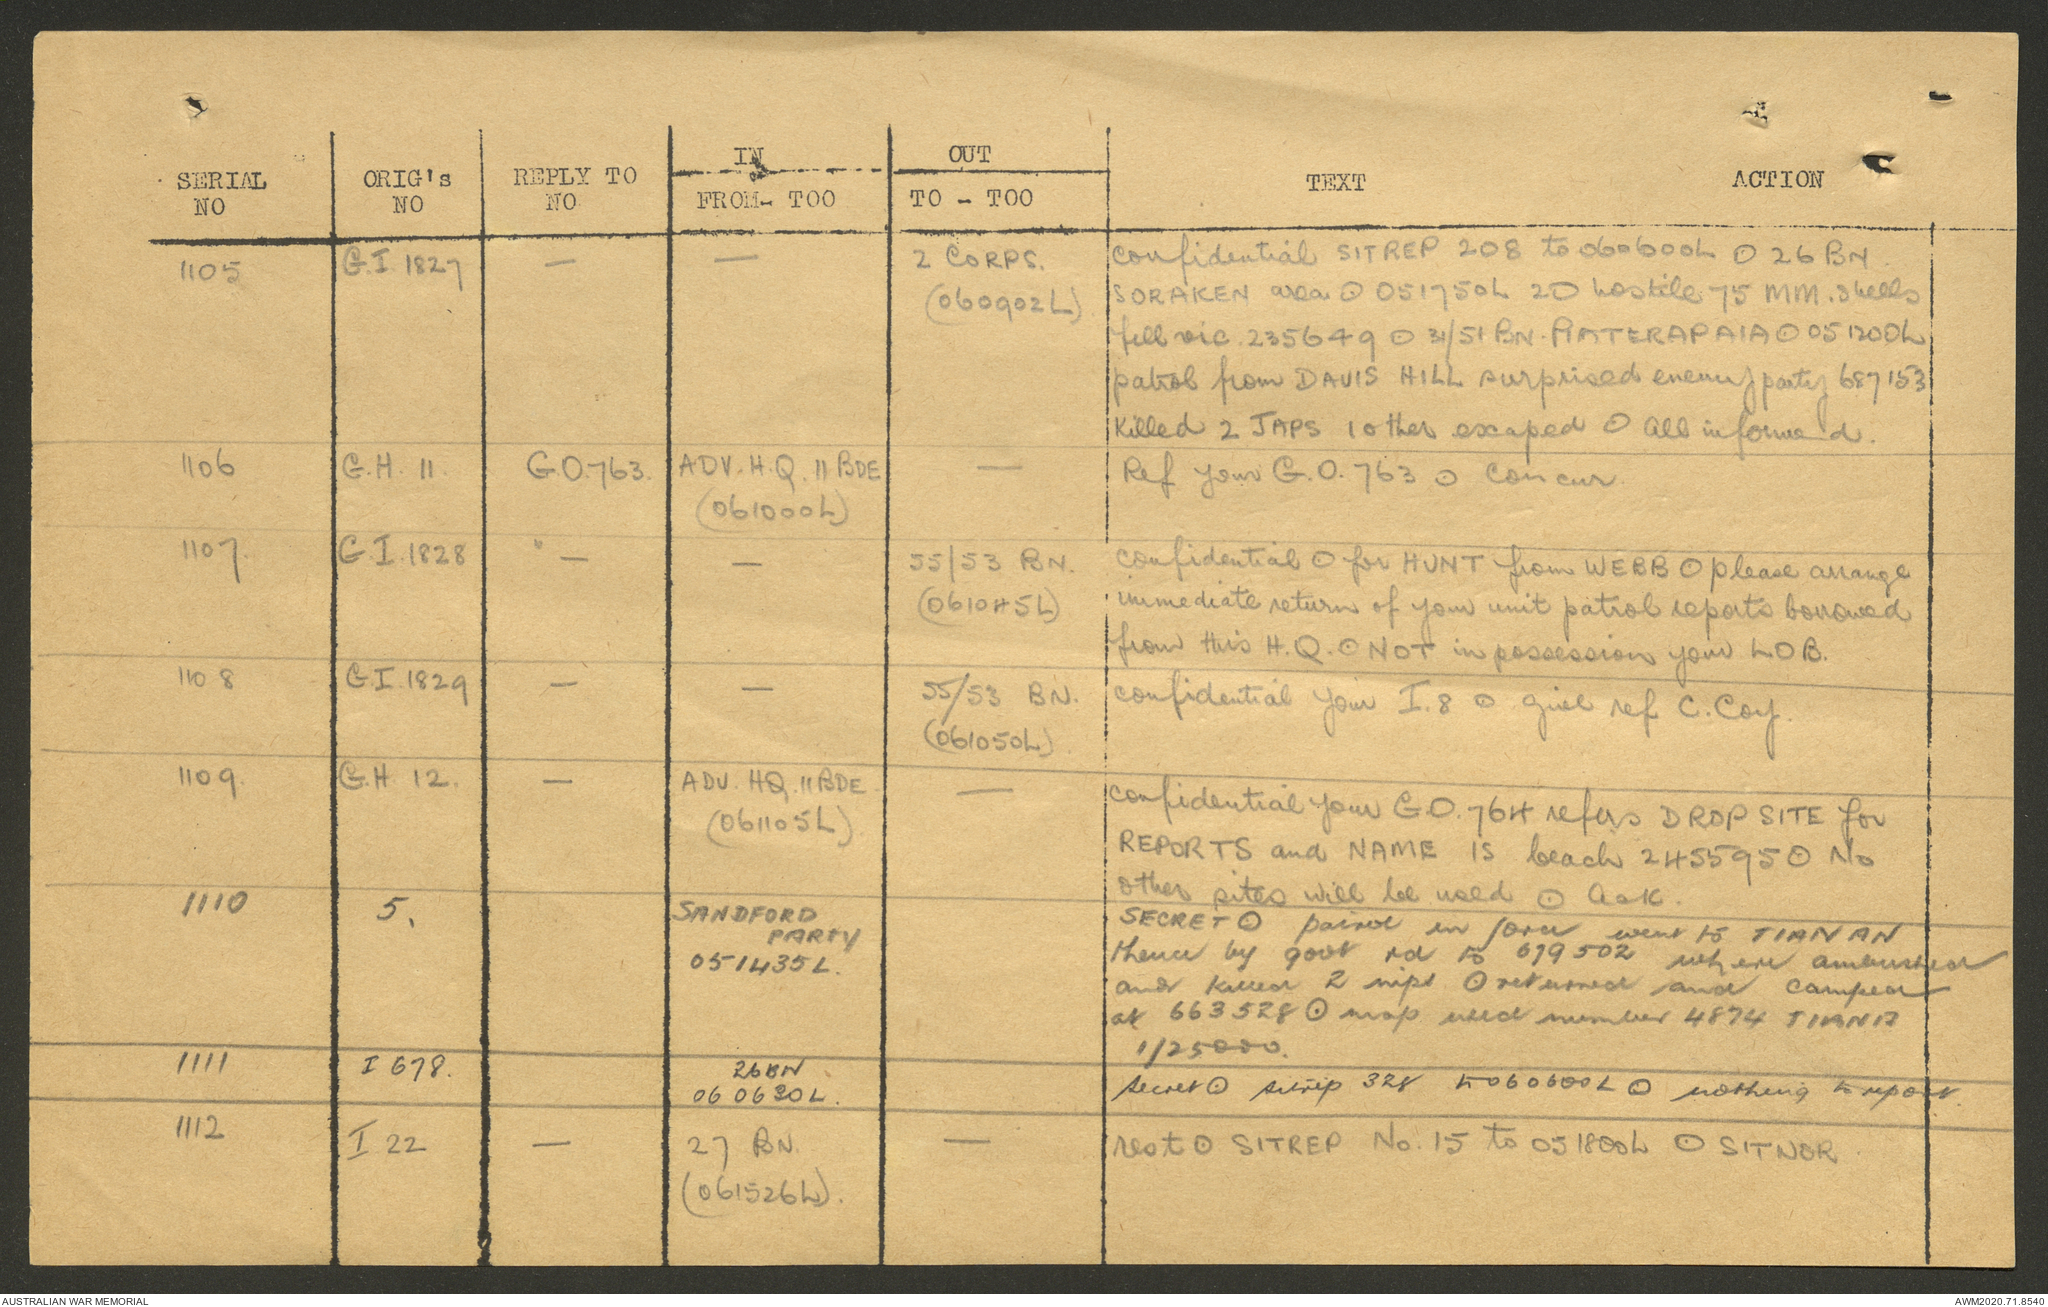 IN OUT
SERIAL NO ORIG's NO REPLY TO NO FROM- TOO TO - TOO TEXT ACTION
1105 G.I. 1827 — — 2 CORPS. (060902L)
confidential SITREP 208 to 060600L ⊙ 26 BN
SORAKEN area ⊙ 051750L 20 hostile 75 MM. shells
fell vic. 235649 ⊙ 31/51 BN. ⊙ 051200L
patrol from DAVIS HILL surprised enemy party 687153
killed 2 JAPS 1 other escaped ⊙ all informed.
1106 G.H. 11. G.O.763. ADV. H.Q. 11 BDE (061000L) —
Ref your G.O. 763 ⊙ concur.
1107. G.I. 1828 — — 55/53 BN. (061045L)
confidential ⊙ for HUNT from WEBB ⊙ please arrange
immediate return of your unit patrol reports borrowed
from this H.Q. ⊙ NOT in possession your LOB.
1108 G.I. 1829 — — 55/53 BN. (061050L)
confidential your I.8 ⊙ give ref C. Coy.
1109. G.H 12. — ADV. HQ. 11 BDE (061105L) —
confidential your G.O. 764 refers DROP SITE for
REPORTS and NAME IS beach 245595 ⊙ No
other sites will be used ⊙ ack.
1110 5. SANDFORD PARTY 051435L.
SECRET ⊙ patrol in force went to TIANAN
thence by govt rd to 679502 where ambushed
and killed 2 nips ⊙ returned and camped
at 663528 ⊙ map used number 4874 TIANA
1/25000.
1111 I 678. 26 BN 060630L.
secret ⊙ sitrep 328 to 060600L ⊙ nothing to report.
1112 I 22 — 27 BN. (061526L). —
rest ⊙ SITREP No. 15 to 051800L ⊙ SITNOR
AUSTRALIAN WAR MEMORIAL
AWM2020.71.8540